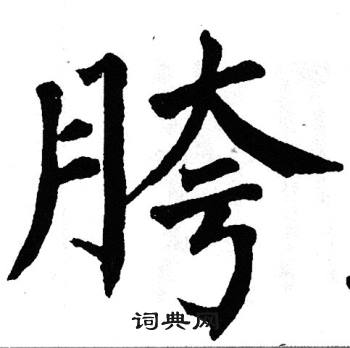 胯
词典网